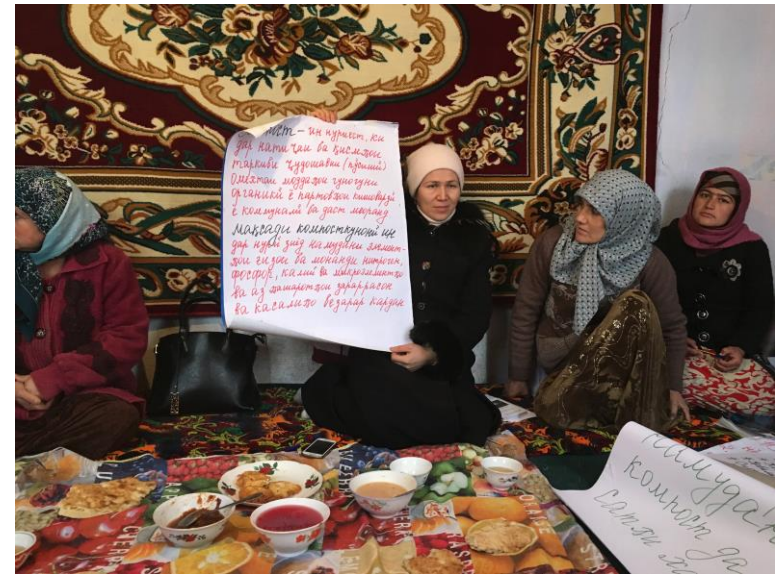 – ин нурист, ки
дар натиҷаи ба қисмҳои
таркиби ҷудошавии (пӯсиш)
омехтаи моддаҳои гуногуни
органикӣ ё партовҳои кишоварзӣ
ё коммуналӣ ба даст меоранд
Мақсади компосткунонӣ ин
дар нурӣ зиёд намудани элемент-
ҳои ғизоӣ ба монанди нитроген,
фосфор, калий ва микроэлементҳо
ва аз ҳашаротҳои зараррасон
ва касалиҳо безарар кардан
компост да
сатҳи
CHERR
ORANGE
RASP